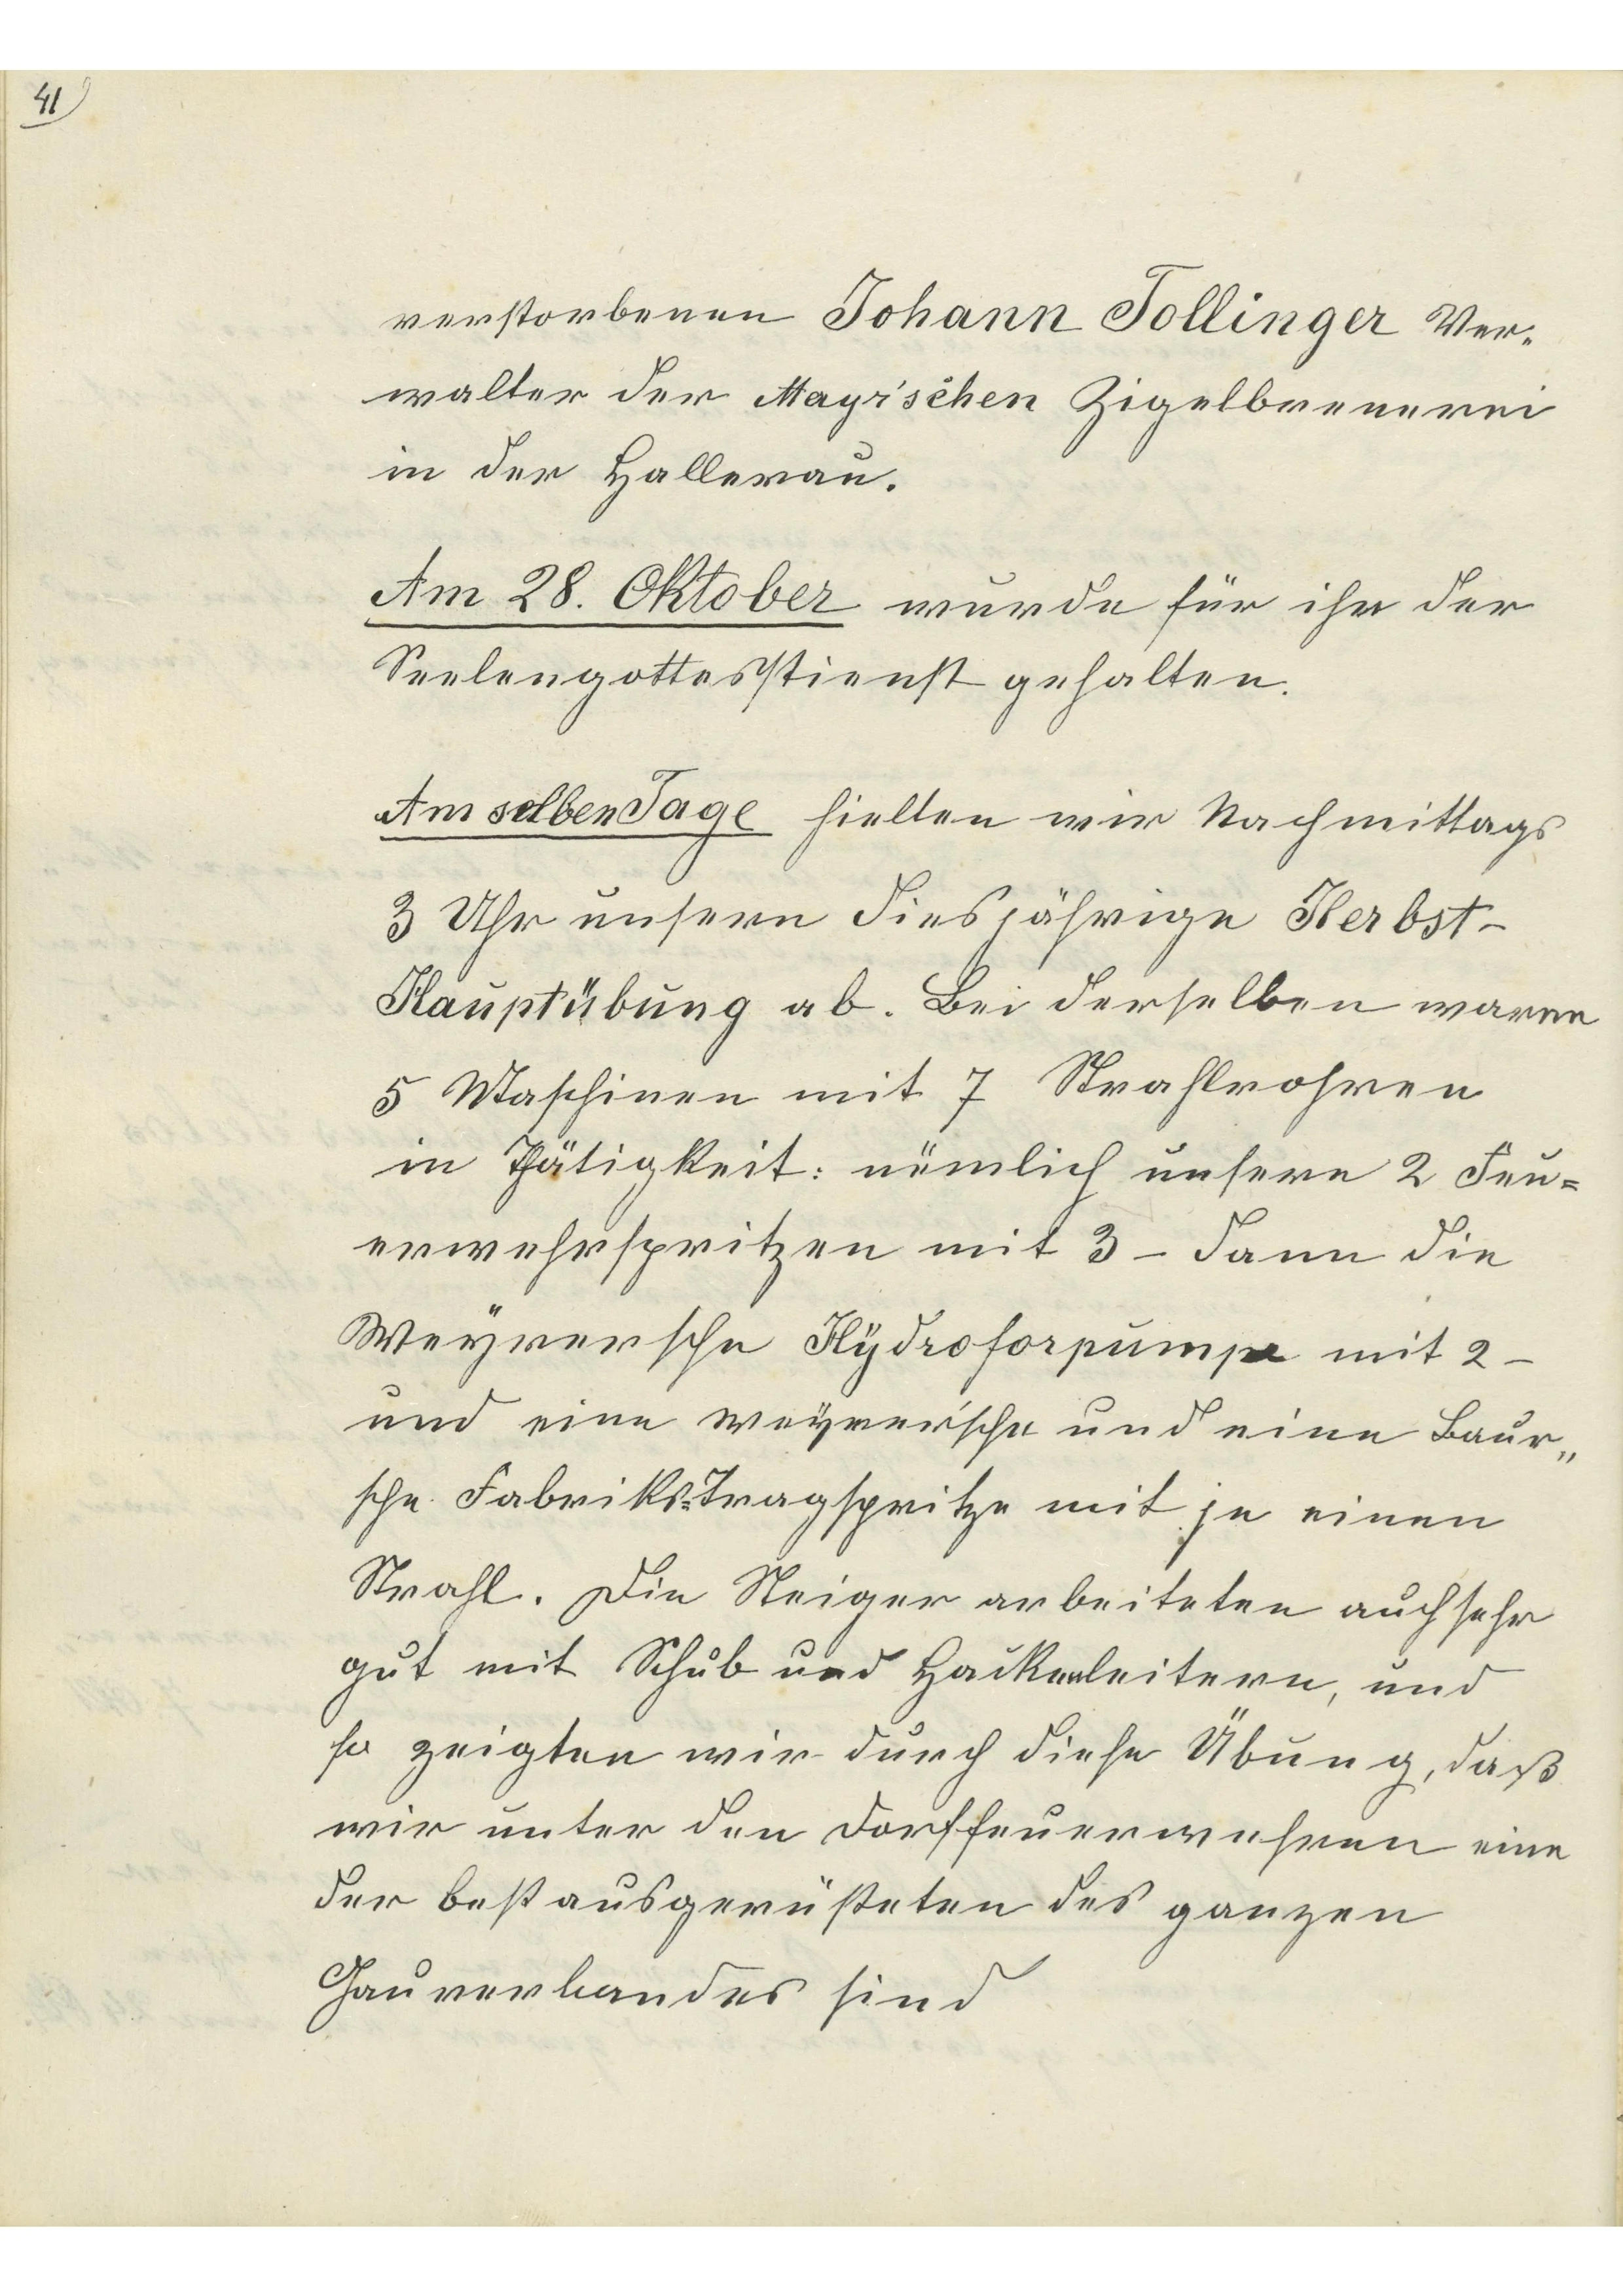 41
verstorbenen Johann Tollinger Ver-
walter der Mayr'schen Zigelbrenerei
in der Hallerau.
Am 28. Oktober wurde für ihn der
Seelengottesdienst gehalten.
Am selben Tage hielten wir Nachmittags
3 Uhr unsern diesjährige Herbst-
Hauptübung ab. Bei derselben waren
5 Maschinen mit 7 Strahlrohren
in Thätigkeit: nämlich unsere 2 Feu=
erwehrspritzen mit 3 - dann die
Weyrersche Hÿdroforpumpe mit 2 -
und eine weyrer'sche und eine Baur„
sche Fabriks=Tragspritze mit je einen
Strahl. Die Steiger arbeiteten auch sehr
gut mit Schub und Hackenleitern, und
so zeigten wir durch diese Übung, daß
wir unter den Dorffeuerwehren eine
der best ausgerüsteten des ganzen
Gauverbandes sind